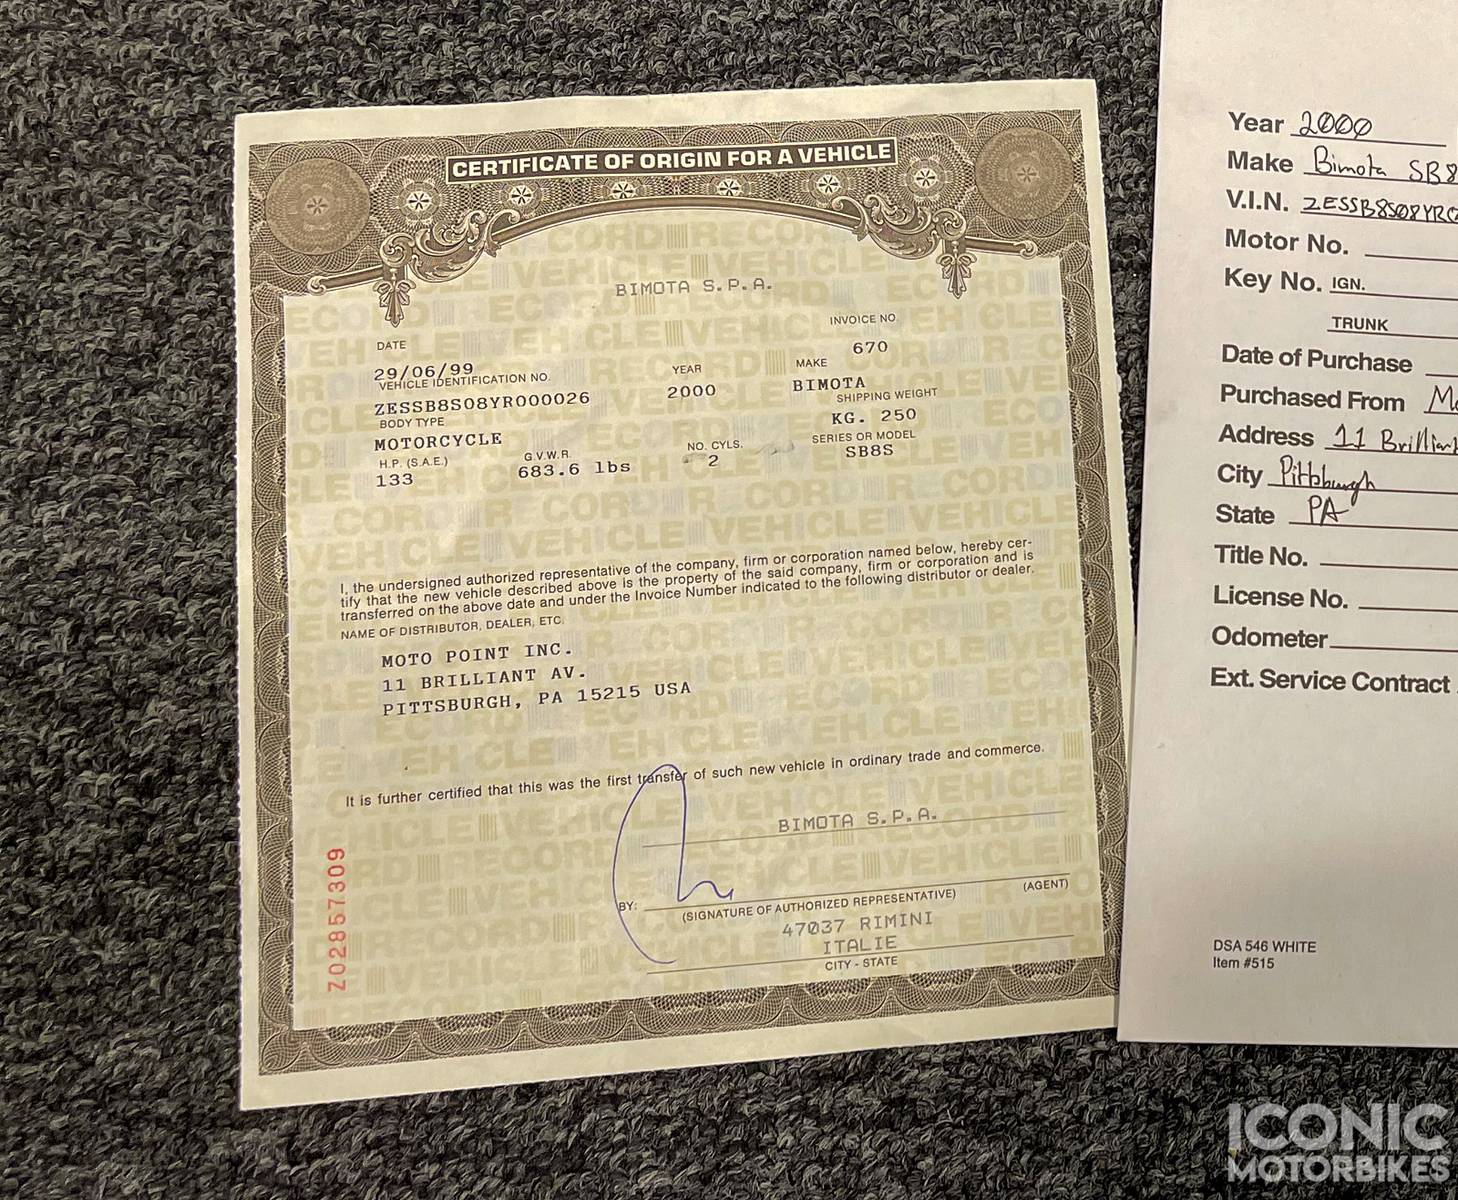 CERTIFICATE OF ORIGIN FOR A VEHICLE
BIMOTA S.P.A.
DATE
INVOICE NO.
29/06/99
670
VEHICLE IDENTIFICATION NO.
YEAR
MAKE
ZESSB8S08YR000026
2000
BIMOTA
BODY TYPE
SHIPPING WEIGHT
MOTORCYCLE
KG. 250
H.P. (S.A.E.)
G.V.W.R.
NO. CYLS.
SERIES OR MODEL
133
683.6 lbs
2
SB8S
I, the undersigned authorized representative of the company, firm or corporation named below, hereby cer-
tify that the new vehicle described above is the property of the said company, firm or corporation and is
transferred on the above date and under the Invoice Number indicated to the following distributor or dealer.
NAME OF DISTRIBUTOR, DEALER, ETC.
MOTO POINT INC.
11 BRILLIANT AV.
PITTSBURGH, PA 15215 USA
It is further certified that this was the first transfer of such new vehicle in ordinary trade and commerce.
BIMOTA S.P.A.
BY:
(SIGNATURE OF AUTHORIZED REPRESENTATIVE)
(AGENT)
47037 RIMINI
ITALIE
CITY - STATE
Z02857309
Year 2000
Make Bimota SB8
V.I.N. ZESSB8S08YR0
Motor No.
Key No. IGN.
TRUNK
Date of Purchase
Purchased From
Address 11 Brilliant
City Pittsburgh
State PA
Title No.
License No.
Odometer
Ext. Service Contract
DSA 546 WHITE
Item #515
ICONIC
MOTORBIKES